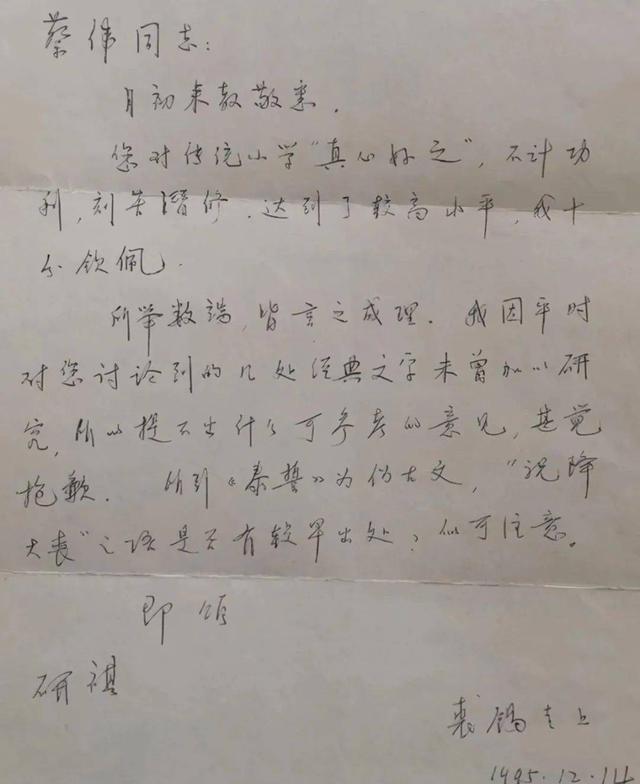 蔡伟同志：
月初来教敬悉．
您对传统小学“真心好之”，不计功
利，刻苦潜修．达到了较高水平，我十
分钦佩．
所举数端，皆言之成理．我因平时
对您讨论到的几处经典文字未曾加以研
究，所以提不出什么可参考的意见，甚觉
抱歉．所引《泰誓》为伪古文，“祝降
大丧”之语是否有较早出处，似可注意。
即颂
研祺
裘锡圭上
1995.12.14